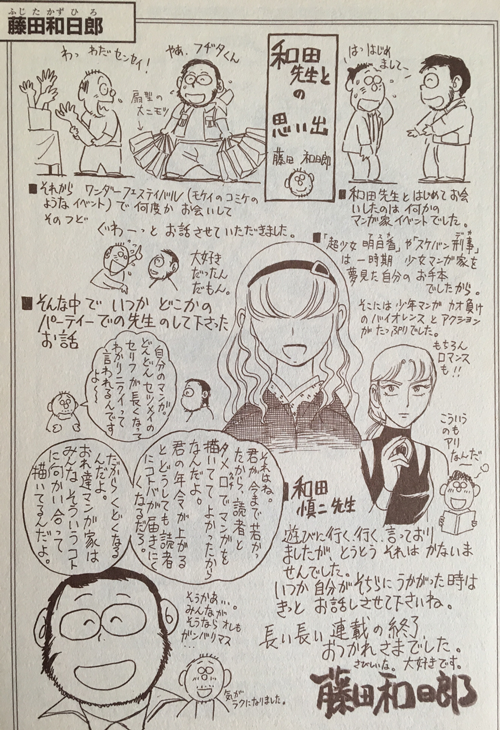 ふじたかずひろ
藤田和日郎
和田
先生と
の
思い出
藤田 和日郎
はっはじめ
まして〜
■和田先生とはじめてお会
いしたのは何かの
マンガ家イベントでした。
■「超少女明日香」や「スケバン刑事」
は一時期 少女マンガ家を
夢見た自分のお手本
でしたから。
そこには少年マンガカオ負け
のバイオレンスとアクション
がたっぷりでした。
もちろん
ロマンス
も!!
こういう
のも
アリ
なんだ〜
やあ、フジタくん
わっわだセンセイ!
扇型の
大ニモツ
■それから ワンダーフェスティバル(モケイのコミケの
ようなイベント)で何度かお会いして
そのつど
ぐわーっとお話させていただきました。
大好き
だったん
だもん。
■そんな中で いつか どこかの
パーティーでの先生のして下さった
お話
自分のマンガ、
どんどんセツメイの
セリフが長くなって
わかりニクイって
言われるんです
よ〜
それはね。
君が今まで若かっ
たから読者と
タメ口でマンガを
描いてよかったから
なんだよ。
君の年令が上がる
とどうしても読者
にコトバが届きにく
くなるだろ。
だからくどくなる
んだよ。
おれ達マンガ家は
みんなそういうコト
に向かい合って
描いてるんだよ。
そうかあ…。
みんなが
そうならオレも
ガンバリマス
…
気が
ラクになりました。
■和田
慎二先生
遊びに行く、行く、言っており
ましたが、とうとう それは かないま
せんでした。
いつか自分がそちらにうかがった時は
きっと お話しさせて下さいね。
長い長い連載の終了
おつかれさまでした。
さびしいな。大好きです。
藤田和日郎